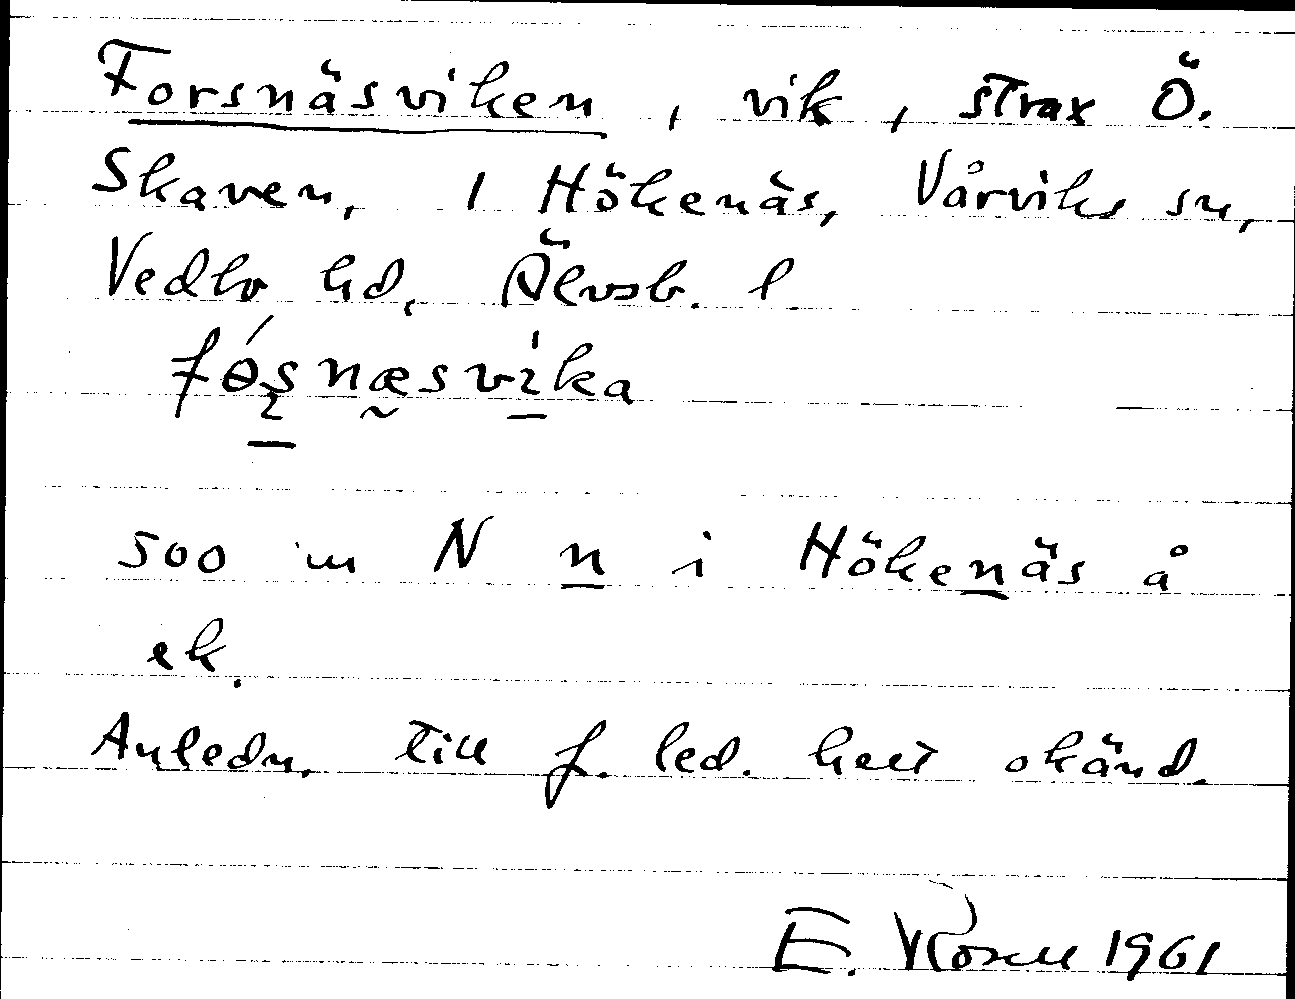 Forsnäsviken, vik, strax Ö.
Skaven, 1 Hökenäs, Vårviks sn,
Vedbo hd, Älvsb. l.
fósnæsvìka
500 m N n i Hökenäs å
ek.
Anledn. till f. led. helt okänd.
E. Rosell 1961